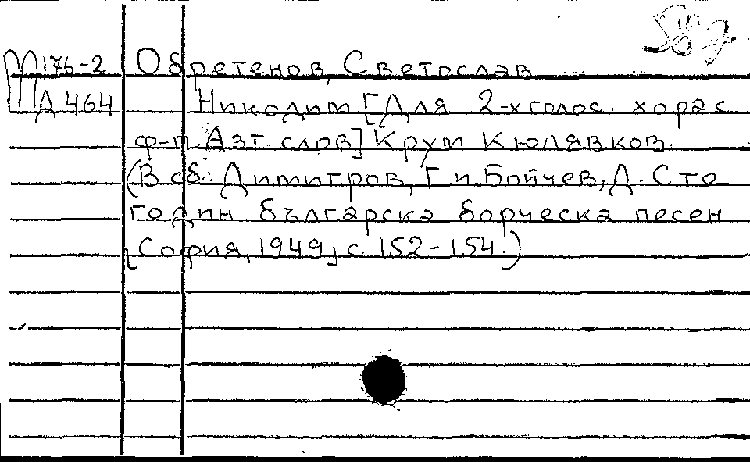 Ш176-2 Обретенов, Светослав
Д464 Никодим [Для 2-х голос. хора с
ф-п. Авт. слов] Крум Кюлявков.
(В сб.: Димитров, Г. и Бойчев, Д. Сто
години българска борческа песен
София, 1949, с. 152-154.)